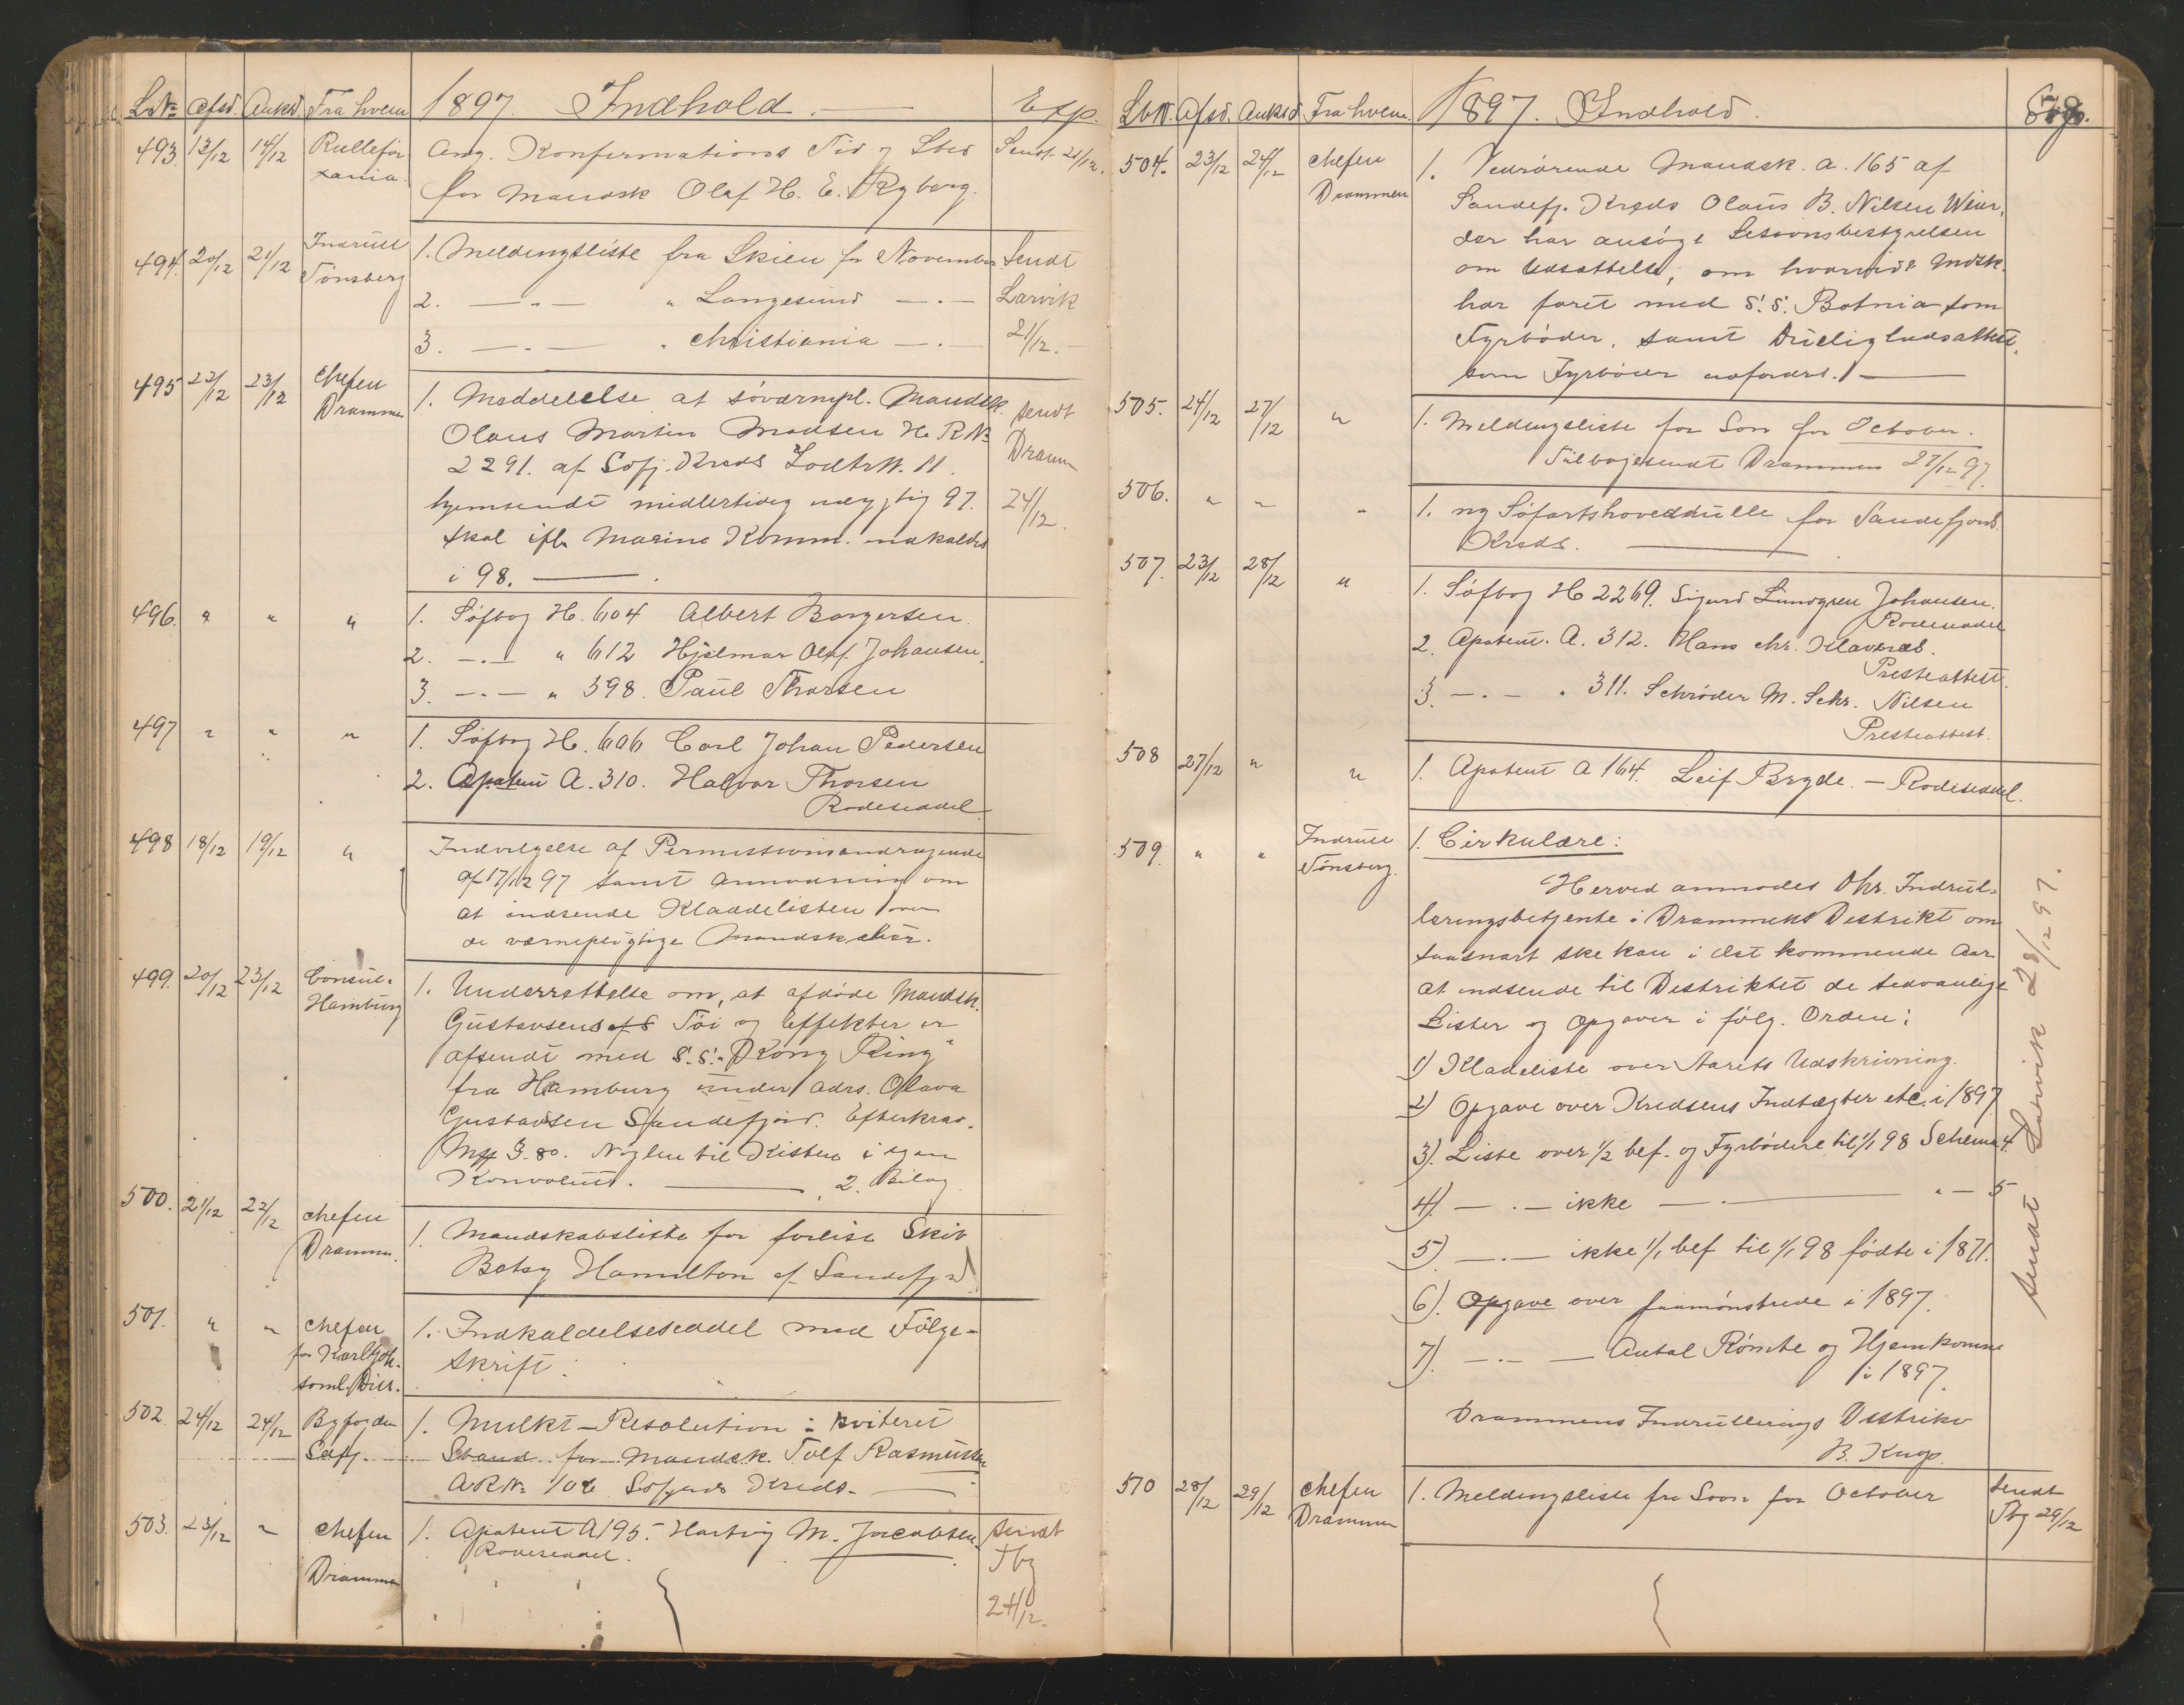 LNo Afsd. Anksd. Fra hvem 1897. Indhold. Exp.
493. 13/12 14/12 Rullefør Ang. Konfirmations Tid og Sted Sendt 21/12.
for Mandsk Olaf H. E. Ryberg.
494. 20/12 21/12 Indrull Tønsberg 1. Meldingsliste fra Skien for November Sendt
2. — " — " Langesund — " — Larvik
3. — " — " Christiania — " — 21/12.
495 22/12 23/12 Chefen Drammen 1. Meddelelse at søværnepl. Mandsk. sendt
Olaus Martin Madsen H. RNo Dramm
2291. af Sdfj. Kreds Lodtr. N. 11. 24/12.
hjemsendt midlertidig udygtig 97.
skal iflg Marine Komm. indkaldes
i 98.
496. " " " 1. Søfbog H. 604 Albert Borgersen.
2. — " — " 612 Hjalmar Olaf Johansen.
3. — " — " 598. Paul Thorsen
497 " " " 1. Søfbog H. 606 Carl Johan Pedersen
2. Apatent A. 310. Halvor Thorsen
Rodeseddel.
498 18/12 19/12 " Indvilgelse af Permissionsandragende
af 17/12 97 samt Anmodning om
at indsende Kladdelisten over
de værnepligtige Mandskaber.
499. 20/12 23/12 Consul. Hamburg 1. Underrettelse om, at afdøde Mandsk.
Gustavsens Tøi og Effekter er
afsendt med S.S. "Kong Ring"
fra Hamburg under adrs. Olava
Gustavsen Sandefjord. Efterkrav.
Mk 3.80. Nøglen til Kisten i egen
Konvolut. 2. Bilag.
500. 21/12 22/12 Chefen Dramm. 1. Mandskabsliste for forlist Skib
Betsy Hamilton af Sandefjord
501. " " Chefen 1. Indkaldelsesseddel med Følge-
for Karljoh. skrift.
soml. Distr.
502. 24/12 24/12 Byfogden Sdfj. 1. Mulkt-Resolution i kviteret
Stand for Mandsk. Tolf Rasmussen
A RNo 102 Sdfjords Kreds.
503. 23/12 " Chefen Drammen 1. Apatent A 195. Hartvig M. Jacobsen sendt
Rodeseddel. Tbg
24/12.
LbN. Afsd. Anksd Fra hvem. 1897. Indhold.
504. 23/12 24/12 Chefen Drammen 1. Vedrørende Mandsk. A. 165 af
Sandefj. Kreds Olaus B. Nilsen Weier,
der har ansøgt Sessionsbestyrelsen
om Udsættelse, om hvorvidt Mdsk.
har faret med S.S. Botnia som
Fyrbøder, samt Duelighedsattest
som Fyrbøder udfordres.
505. 24/12 27/12 " 1. Meldingsliste for Son for October.
Tilbagesendt Drammen 27/12 97.
506. " " " 1. ny Søfartshovedrulle for Sandefjords
Kreds.
507. 23/12 28/12 " 1. Søfbog H 2269. Sigurd Lundgren Johansen.
Rodeseddel
2. Apatent. A. 312. Hans Chr. Klavenæs.
Presteattest.
3. — " — " 311. Schrøder M. Schr. Nilsen
Presteattest.
508 27/12 " " 1. Apatent A 164. Leif Bryde. — Rodeseddel.
509. " " Indrull Tønsberg. 1. Cirkulære:
Herved anmodes Dhr. Indrul-
leringsbetjente i Drammens Destrikt om
saasnart ske kan i det kommende Aar
at indsende til Destriktet de sedvanlige
Lister og Opgaver i følg. Orden:
1) Kladeliste over Aarets Udskrivning.
2) Opgave over Kredsens Indtægter etc. i 1897
3). Liste over 1/2 bef. og Fyrbødere til 1/1 98 Schema 4.
4) — " — ikke — " — " — 5
5) — " — ikke 1/1 bef til 1/1 98 fødte i 1871.
6). Opgave over paamønstrede i 1897.
7) — " — Antal Rømte og Hjemkomne
i 1897.
Drammens Indrullerings Destrikt
B. Knap.
sendt Larvik 28/12 97.
510 28/12 29/12 Chefen Drammen 1. Meldingsliste fra Soon for October Sendt
Tbg 29/12